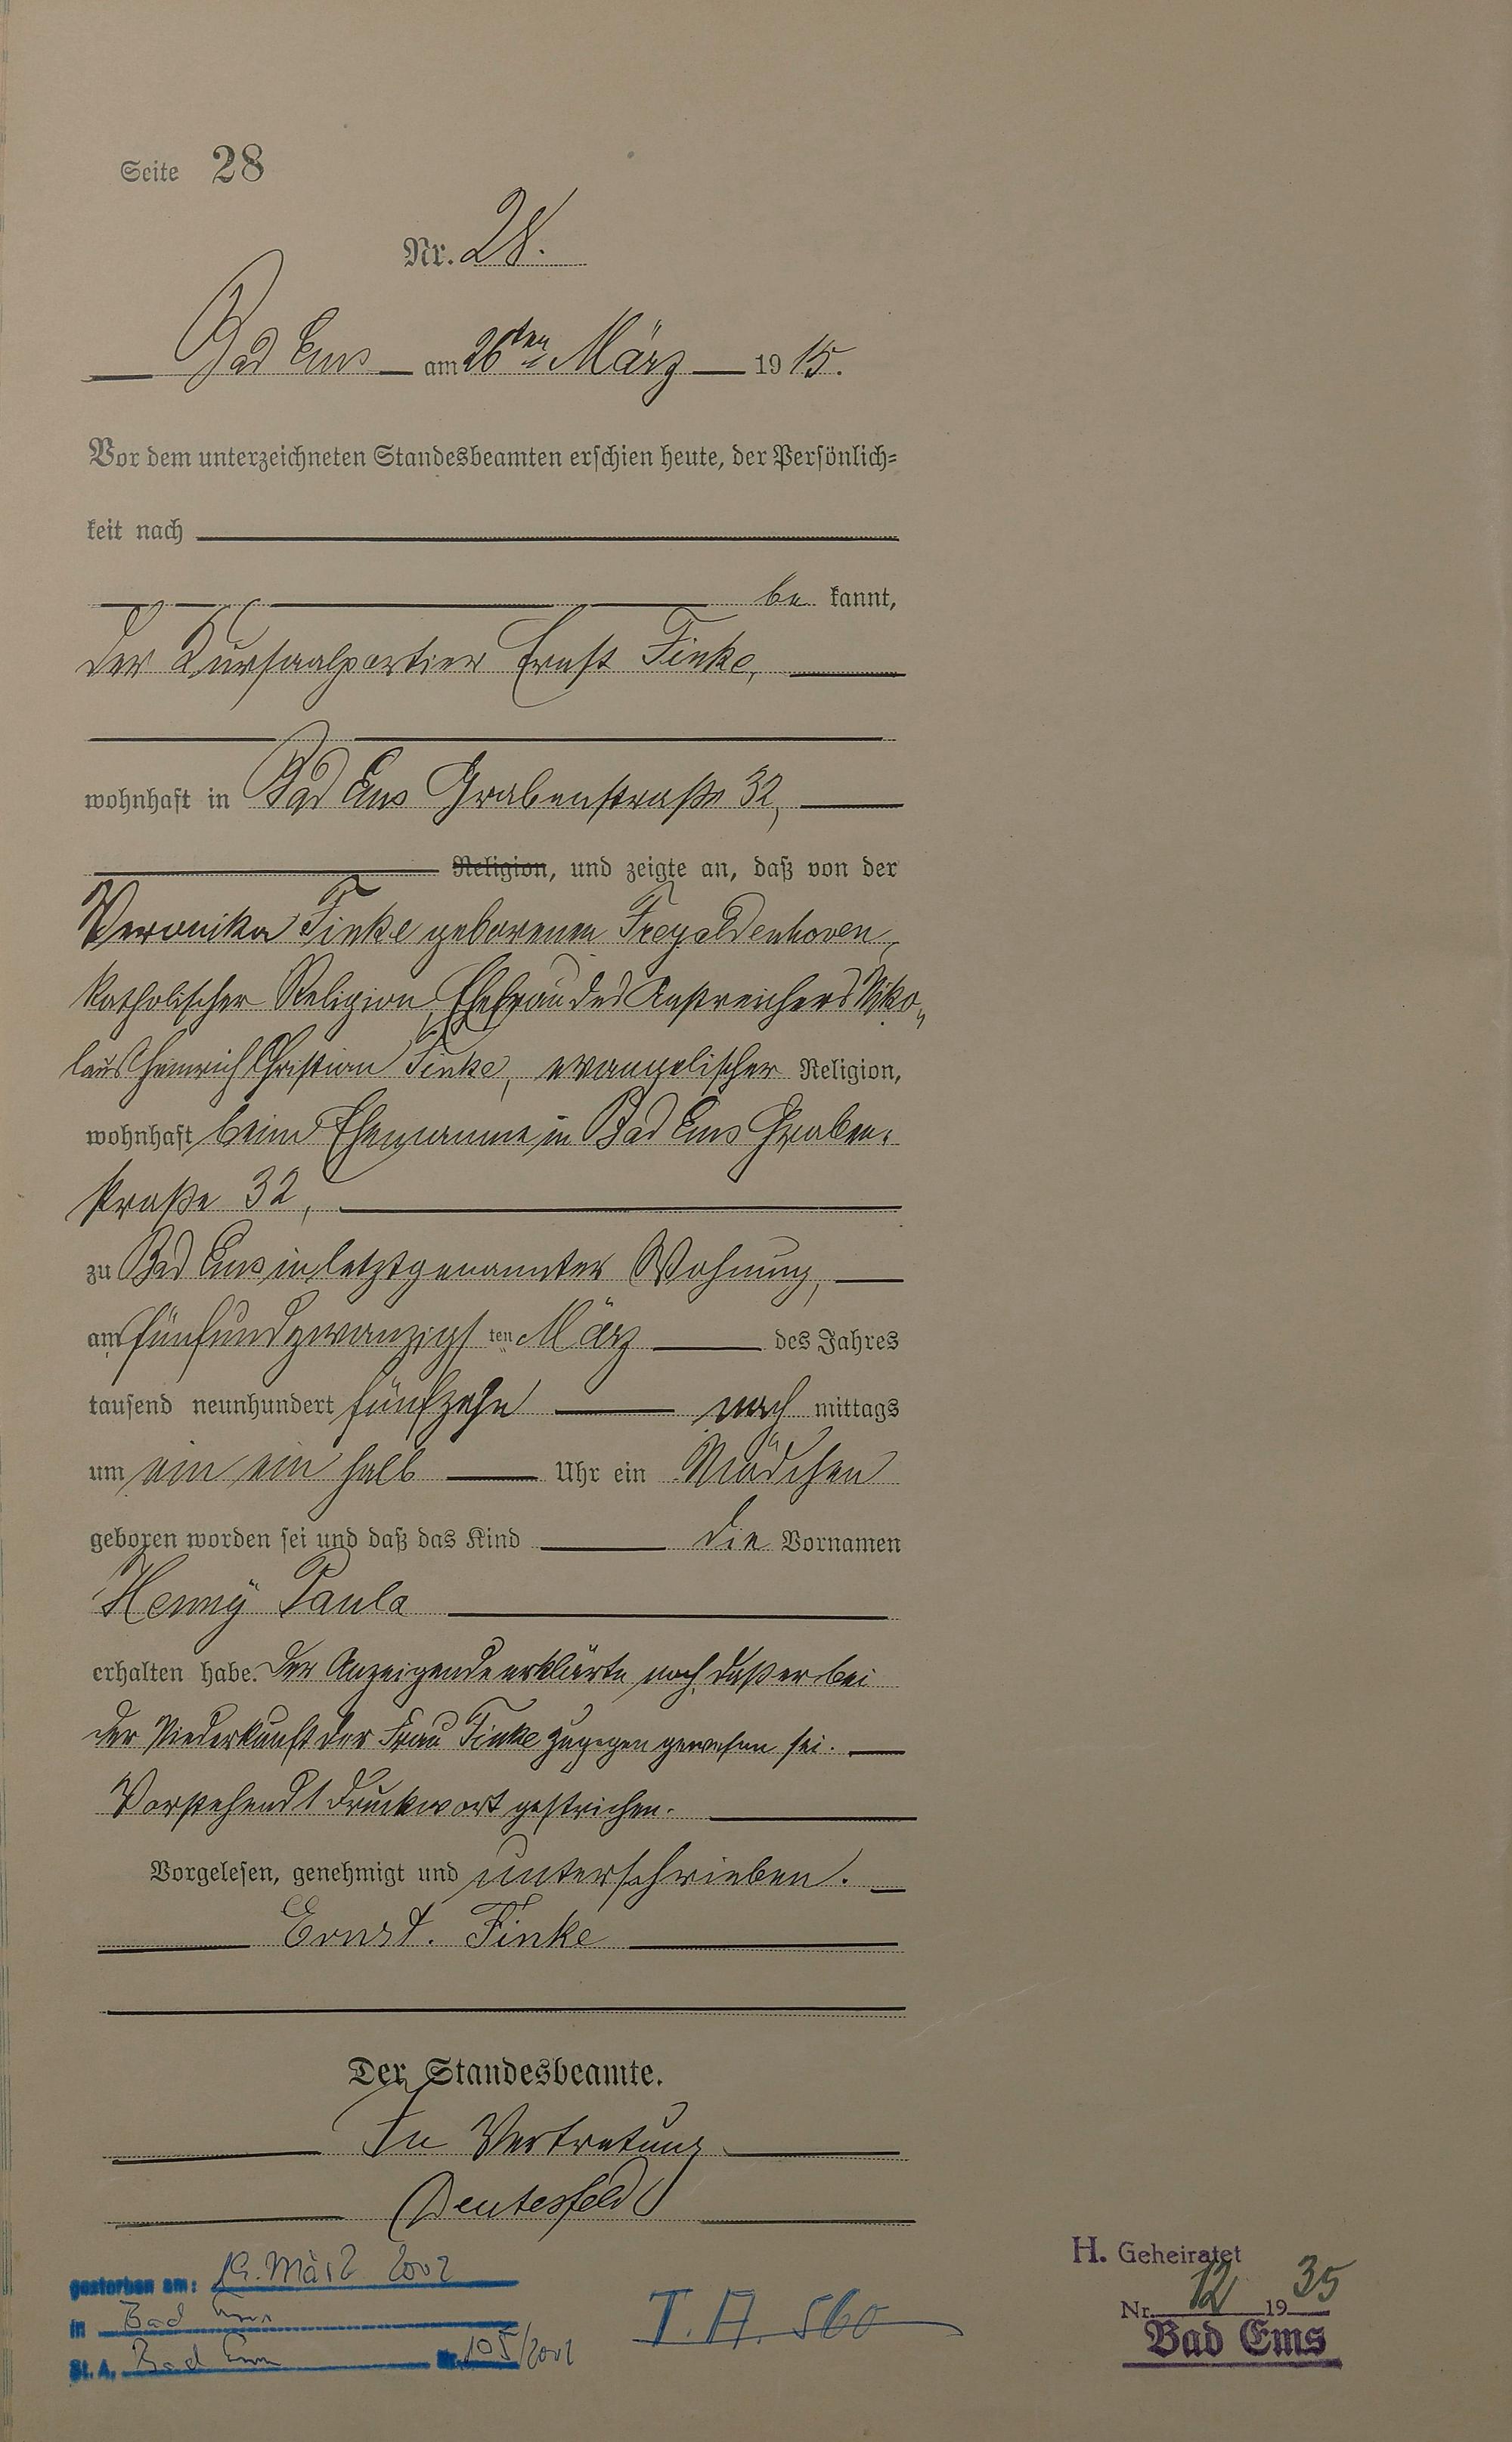 Seite 28
Nr. 28.
Bad Ems am 26ten März 1915.
Vor dem unterzeichneten Standesbeamten erschien heute, der Persönlich-
keit nach
be kannt,
der Kursaalportier Ernst Finke,
wohnhaft in Bad Ems Grabenstraße 32,
Religion, und zeigte an, daß von der
Veronika Finke geborenen Freyaldenhoven,
katholischer Religion, Ehefrau des Anstreichers Niko-
laus Heinrich Christian Finke, evangelischer Religion,
wohnhaft beim Ehemanne in Bad Ems Graben-
straße 32,
zu Bad Ems in letztgenannter Wohnung,
am fünfundzwanzigsten März des Jahres
tausend neunhundert fünfzehn nachmittags
um ein ein halb Uhr ein Mädchen
geboren worden sei und daß das Kind die Vornamen
Henny Paula
erhalten habe. Der Anzeigende erklärte noch, daß er bei
der Niederkunft der Frau Finke zugegen gewesen sei.
Vorstehend 1 Druckwort gestrichen.
Vorgelesen, genehmigt und unterschrieben.
Ernst. Finke
Der Standesbeamte.
In Vertretung
gestorben am: 19. März 2002
in Bad Ems
St. A. Bad Ems Nr. 105/2002
H. Geheiratet
Nr. 12 1935
Bad Ems